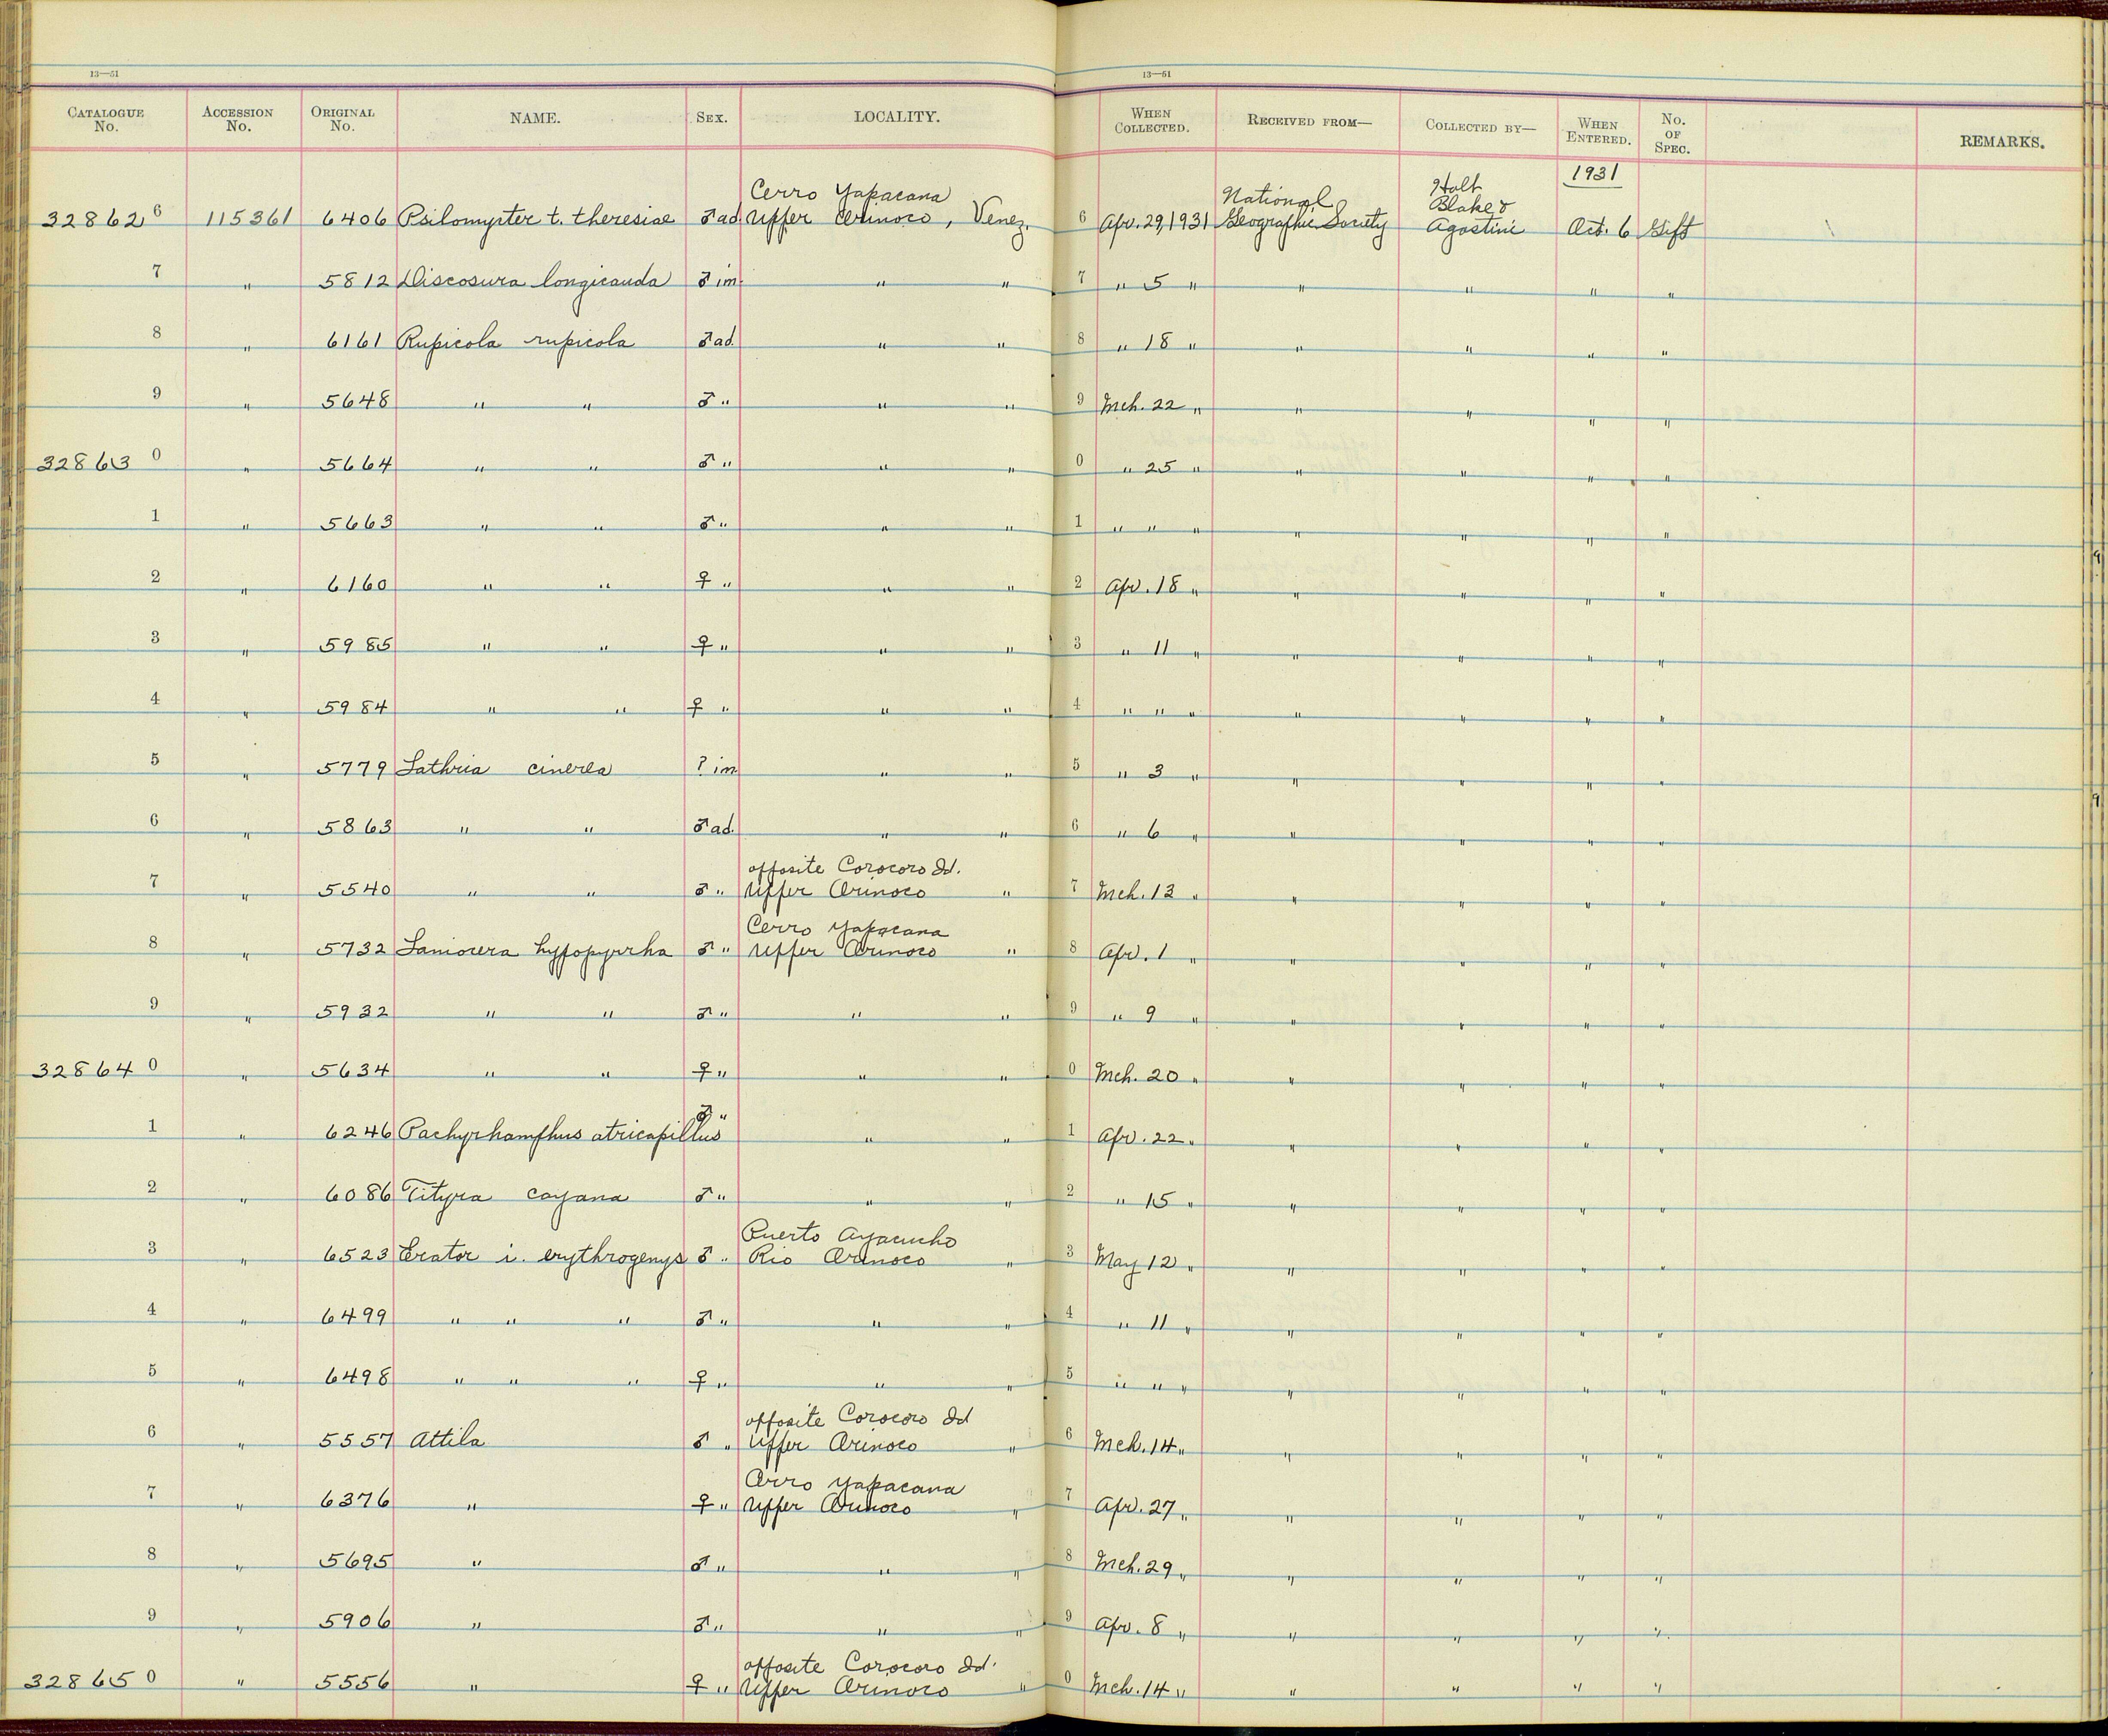 13—51 13—51
CATALOGUE No. ACCESSION No. ORIGINAL No. NAME. SEX. LOCALITY. WHEN COLLECTED. RECEIVED FROM— COLLECTED BY— WHEN ENTERED. No. OF SPEC. REMARKS.
1931
Cerro Yapacana National Holt
Blake &
32862 6 115361 6406 Psilomyster t. theresiae ♂ ad. Upper Orinoco, Venez. 6 Apr. 29, 1931 Geographic Society Agostini Oct. 6 Gift
7 " 5812 Discosura longicauda ♂ im. " " 7 " 5 " " " " "
8 " 6161 Rupicola rupicola ♂ ad. " " 8 " 18 " " " " "
9 " 5648 " " ♂ " " " 9 Mch. 22 " " " " "
32863 0 " 5664 " " ♂ " " " 0 " 25 " " " " "
1 " 5663 " " ♂ " " " 1 " " " " " " "
2 " 6160 " " ♀ " " " 2 Apr. 18 " " " " "
3 " 5985 " " ♀ " " " 3 " 11 " " " " "
4 " 5984 " " ♀ " " " 4 " " " " " " "
5 " 5779 Lathria cinerea ? im. " " 5 " 3 " " " " "
6 " 5863 " " ♂ ad. " " 6 " 6 " " " " "
opposite Corocoro Id.
7 " 5540 " " ♂ " Upper Orinoco " 7 Mch. 13 " " " " "
Cerro Yapacana
8 " 5732 Laniocera hypopyrrha ♂ " Upper Orinoco " 8 Apr. 1 " " " " "
9 " 5932 " " ♂ " " " 9 " 9 " " " " "
32864 0 " 5634 " " ♀ " " " 0 Mch. 20 " " " " "
1 " 6246 Pachyrhamphus atricapillus ♂ " " " 1 Apr. 22 " " " " "
2 " 6086 Tityra cayana ♂ " " " 2 " 15 " " " " "
Puerto Ayacucho
3 " 6523 Erator i. erythrogenys ♂ " Rio Orinoco " 3 May 12 " " " " "
4 " 6499 " " " ♂ " " " 4 " 11 " " " " "
5 " 6498 " " " ♀ " " " 5 " " " " " " "
opposite Corocoro Id
6 " 5557 Attila ♂ " Upper Orinoco " 6 Mch. 14 " " " " "
Cerro Yapacana
7 " 6376 " ♀ " Upper Orinoco " 7 Apr. 27 " " " " "
8 " 5695 " ♂ " " " 8 Mch. 29 " " " " "
9 " 5906 " ♂ " " " 9 Apr. 8 " " " " "
opposite Corocoro Id.
32865 0 " 5556 " ♀ " Upper Orinoco " 0 Mch. 14 " " " " "